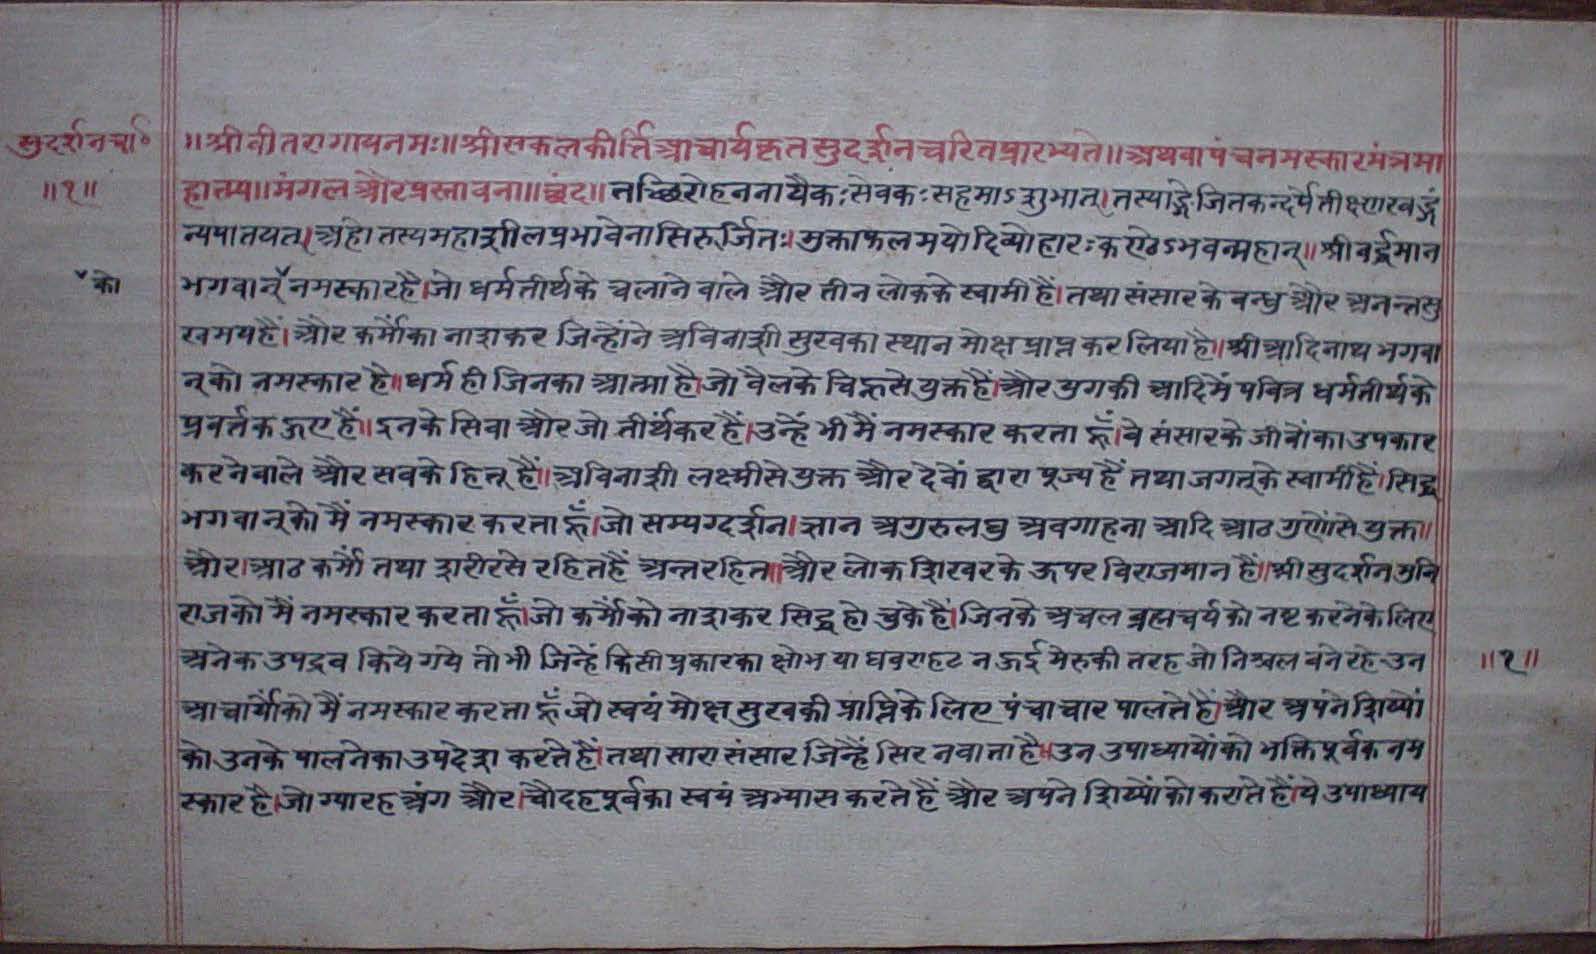 सुदर्शनचा०
॥१॥
॥श्रीवीतरागायनमः॥श्रीसकलकीर्त्तिआचार्यकृतसुदर्शनचरित्रप्रारभ्यते॥अथवापंचनमस्कारमंत्रमा
हात्म्य॥मंगलऔरप्रस्तावना॥छंद॥तच्छिरोहननायैकःसेवकःसहमाऽशुभात्।तस्याङ्गेजितकन्दर्पेतीक्ष्णखड्गं
न्यपातयत्।अहोतस्यमहाशीलप्रभावेनासिरूर्जितः।मुक्ताफलमयोदिव्योहारःकण्ठेऽभवन्महान्॥श्रीवर्द्धमान
ˇको
भगवान्ˇनमस्कारहै।जो धर्मतीर्थके चलाने वाले और तीन लोकके स्वामी हैं।तथा संसार के बन्धु और अनन्तसु
खमयहैं।और कर्मोंका नाशकर जिन्होंने अविनाशी सुखका स्थान मोक्ष प्राप्त कर लिया है॥श्रीआदिनाथ भगवा
न्को नमस्कार है॥धर्म ही जिनका आत्मा है।जो बैलके चिह्नसे युक्त हैं।और युगकी आदिमें पवित्र धर्मतीर्थके
प्रवर्त्तक ऊए हैं॥इनके सिवा और जो तीर्थंकर हैं।उन्हें भी मैं नमस्कार करता हूँ।वे संसारके जीवोंका उपकार
करनेवाले और सबके हितू हैं॥अविनाशी लक्ष्मीसे युक्त और देवों द्वारा पूज्य हैं तथा जगत्के स्वामी हैं।सिद्ध
भगवान्को मैं नमस्कार करता हूँ।जो सम्यग्दर्शन।ज्ञान अगुरुलघु अवगाहना आदि आठ गुणोंसे युक्त॥
और।आठ कर्मों तथा शरीरसे रहित हैं अन्तरहित॥और लोक शिखरके ऊपर विराजमान हैं॥श्री सुदर्शन मुनि
राजको मैं नमस्कार करता हूँ।जो कर्मोंको नाशकर सिद्ध हो चुके हैं।जिनके अचल ब्रह्मचर्य को नष्ट करनेके लिए
अनेक उपद्रव किये गये तो भी जिन्हें किसी प्रकारका क्षोभ या घबराहट न ऊई मेरुकी तरह जो निश्चल बने रहे-उन
॥१॥
आचार्योंको मैं नमस्कार करता हूँ जो स्वयं मोक्ष सुखकी प्राप्तिके लिए पंचाचार पालते हैं।और अपने शिष्यों
को उनके पालनेका उपदेश करते हैं।तथा सारा संसार जिन्हें सिर नवाता है॥उन उपाध्यायोंको भक्तिपूर्वक नम
स्कार है।जो ग्यारह अंग और।चौदह पूर्वका स्वयं अभ्यास करते हैं और अपने शिष्योंको कराते हैं।ये उपाध्याय